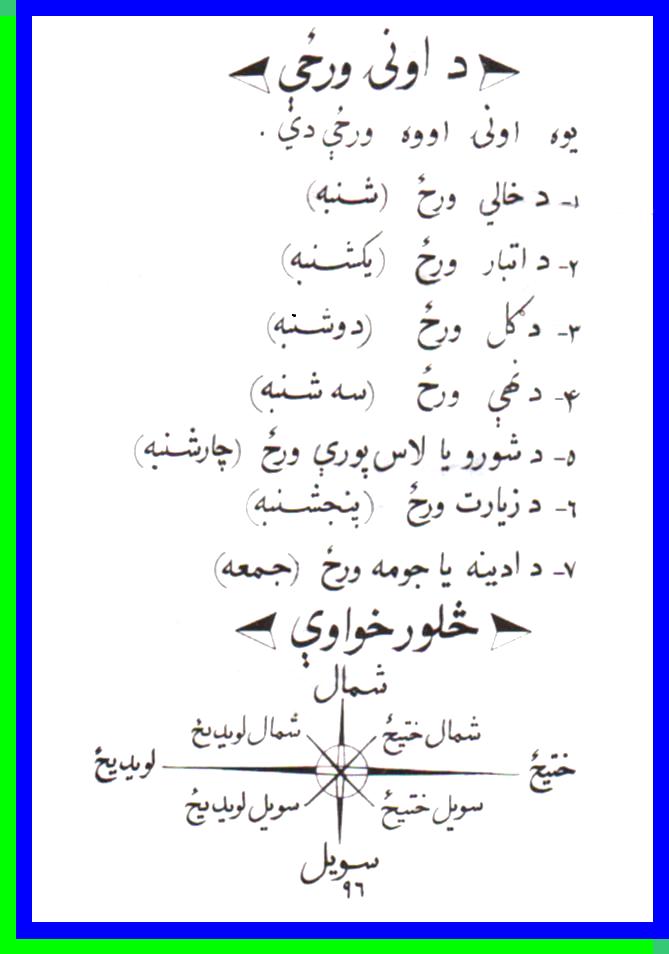 د اونۍ ورځې
یوه اونۍ اووه ورځې دي .
۱- د خالي ورځ (شنبه)
۲- د اتبار ورځ (یکشنبه)
۳- د ګل ورځ (دوشنبه)
۴- د نهې ورځ (سه شنبه)
۵- د شورو یا لاس پورې ورځ (چارشنبه)
۶- د زیارت ورځ (پنجشنبه)
۷- د ادینه یا جومه ورځ (جمعه)
څلور خواوې
شمال
شمال ختیځ شمال لویدیځ
ختیځ لویدیځ
سویل ختیځ سویل لویدیځ
سویل
۹۶